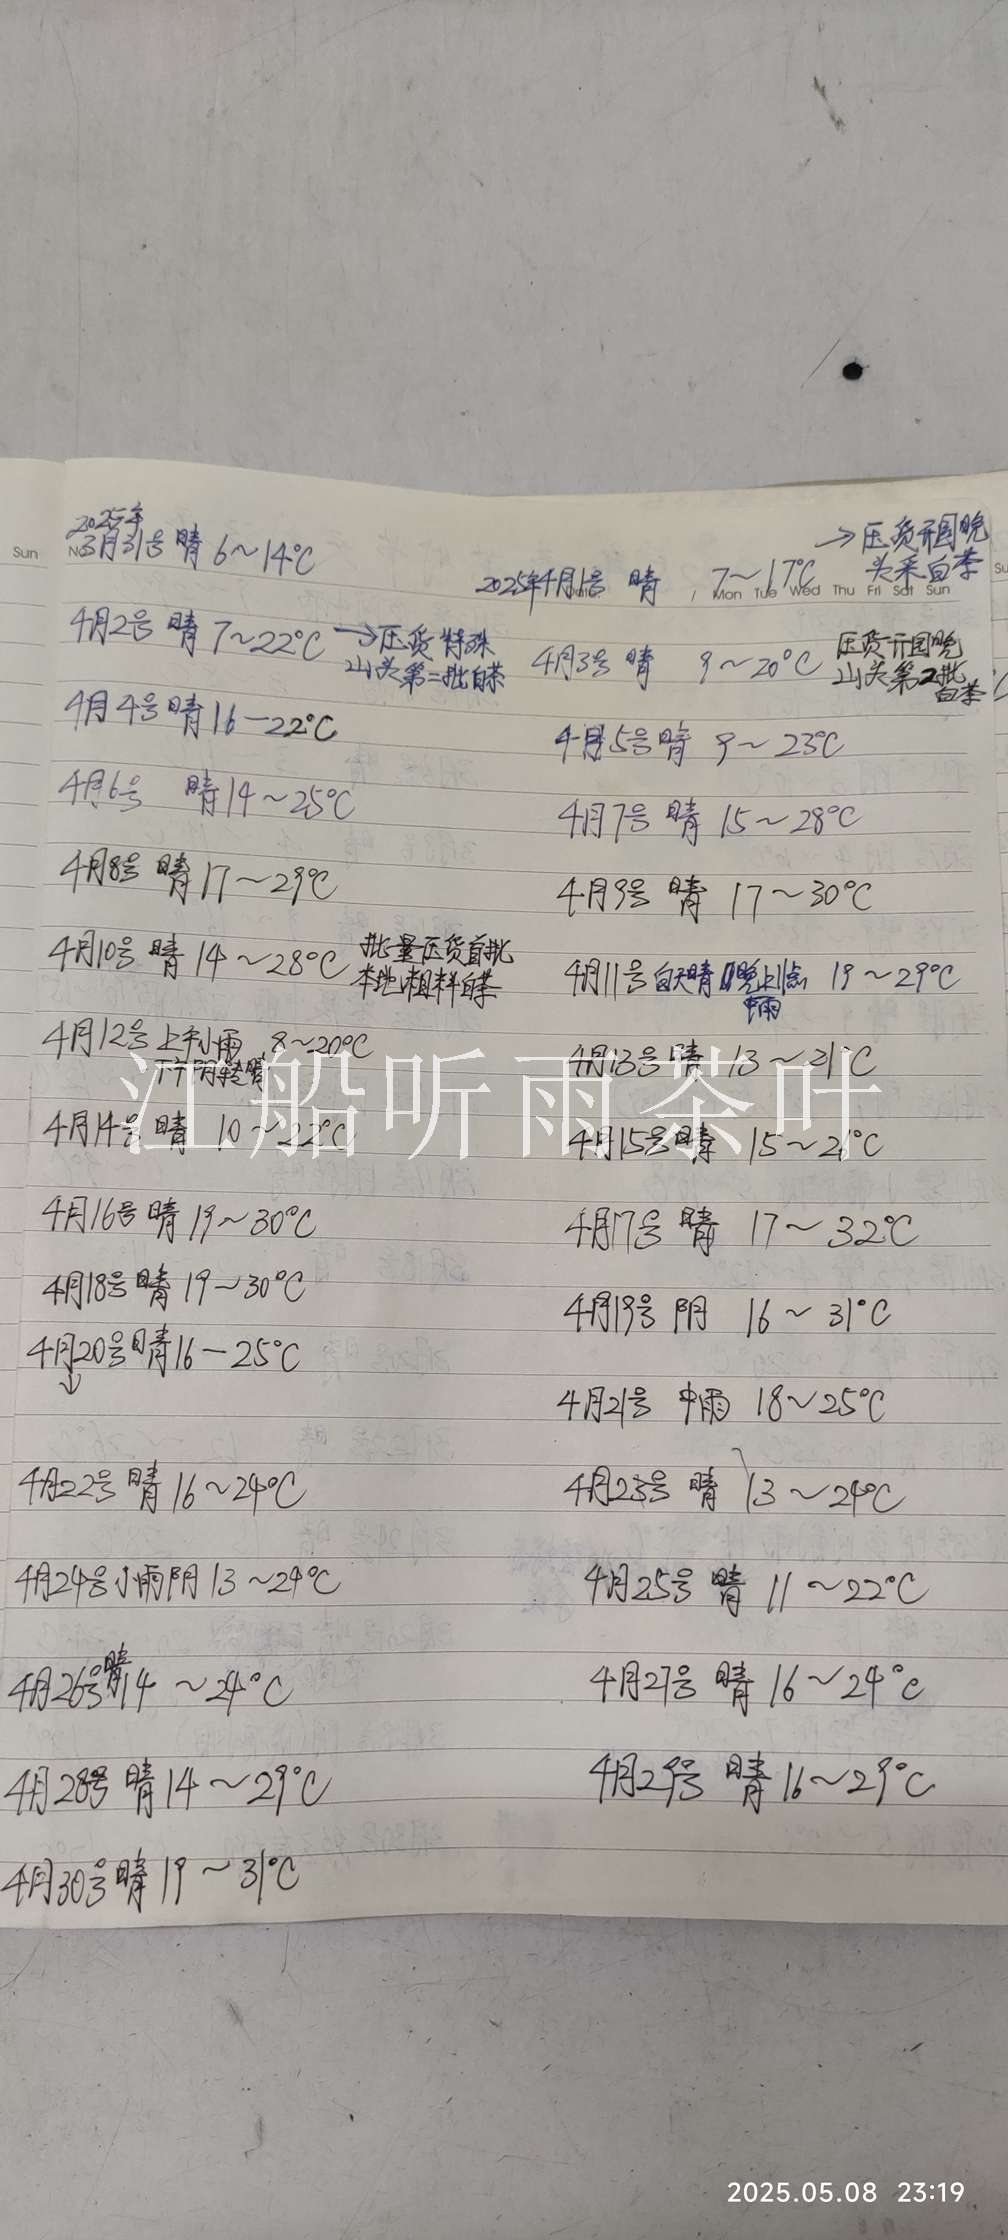 2025年
3月31号 晴 6~14℃
→压货开园晚
头采白茶
2025年4月1号 晴 7~17℃
Sun
Mon Tue Wed Thu Fri Sat Sun
4月2号 晴 7~22℃ →压货特殊
山头第二批白茶
4月3号 晴 9~20℃ 压货开园晚
山头第2批
白茶
4月4号 晴 16-22℃
4月5号 晴 9~23℃
4月6号 晴 14~25℃
4月7号 晴 15~28℃
4月8号 晴 17~29℃
4月9号 晴 17~30℃
4月10号 晴 14~28℃ 批量压货首批
本地粗料白茶
4月11号 白天晴 晚上11点 19~29℃
中雨
4月12号 上午小雨 8~20℃
下午阴转晴
4月13号 晴 13~21℃
江船听雨茶叶
4月14号 晴 10~22℃
4月15号 晴 15~21℃
4月16号 晴 19~30℃
4月17号 晴 17~32℃
4月18号 晴 19~30℃
4月19号 阴 16~31℃
4月20号 晴 16-25℃
↓
4月21号 中雨 18~25℃
4月22号 晴 16~24℃
4月23号 晴 13~24℃
4月24号 小雨阴 13~29℃
4月25号 晴 11~22℃
4月26号 晴 14~24℃
4月27号 晴 16~24℃
4月28号 晴 14~29℃
4月29号 晴 16~29℃
4月30号 晴 19~31℃
2025.05.08 23:19